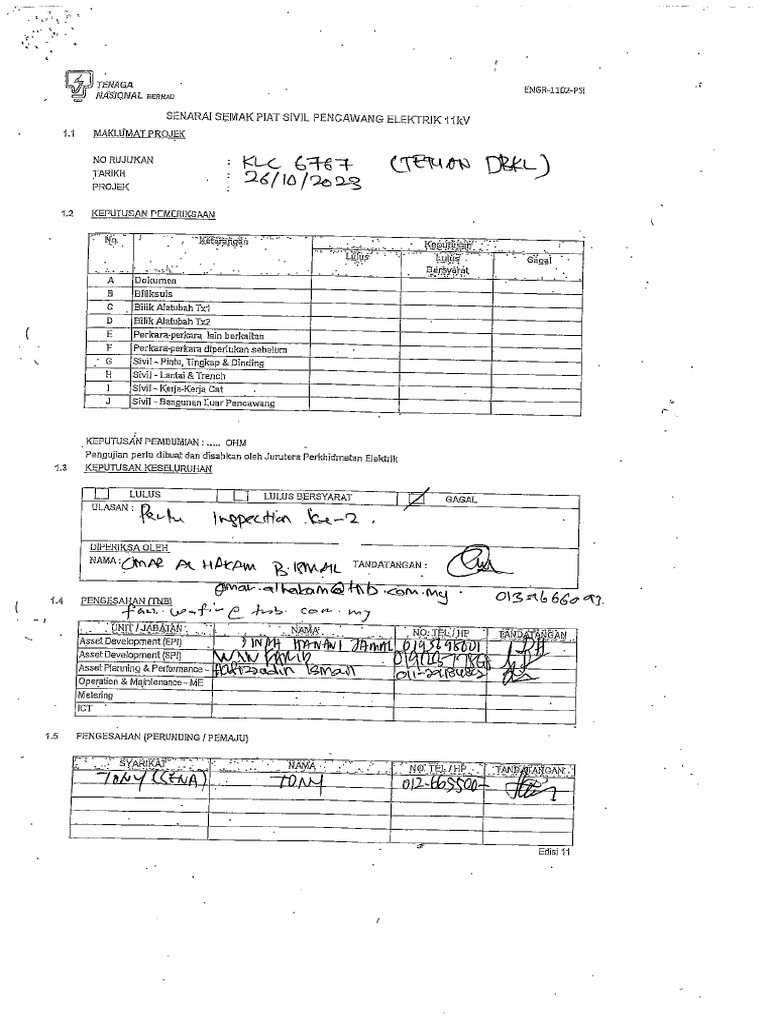 TENAGA
NASIONAL BERHAD
ENGR-1102-PSI
SENARAI SEMAK PIAT SIVIL PENCAWANG ELEKTRIK 11kV
1.1 MAKLUMAT PROJEK
NO RUJUKAN : KLC 6767 (TEMAN DBKL)
TARIKH : 26/10/2023
PROJEK :
1.2 KEPUTUSAN PEMERIKSAAN
No. Keterangan Keputusan
Lulus Lulus Bersyarat Gagal
A Dokumen
B Biliksuis
C Bilik Alatubah Tx1
D Bilik Alatubah Tx2
E Perkara-perkara lain berkaitan
F Perkara-perkara diperlukan sebelum
G Sivil - Pintu, Tingkap & Dinding
H Sivil - Lantai & Trench
I Sivil - Kerja-Kerja Cat
J Sivil - Bangunan Luar Pencawang
KEPUTUSAN PEMBUMIAN : ..... OHM
Pengujian perlu dibuat dan disahkan oleh Jurutera Perkhidmatan Elektrik
1.3 KEPUTUSAN KESELURUHAN
LULUS LULUS BERSYARAT GAGAL
ULASAN : Perlu Inspection ke-2.
DIPERIKSA OLEH
NAMA: OMAR AL HAKAM B. TANDATANGAN :
omar.alhakam@tnb.com.my
1.4 PENGESAHAN (TNB)
tnb.com.my
UNIT / JABATAN NAMA NO. TEL / HP TANDATANGAN
Asset Development (EPI) HANANI JAMAL
Asset Development (SPI) WAN
Asset Planning & Performance - Hafizzadin Ismail
Operation & Maintenance - ME
Metering
ICT
1.5 PENGESAHAN (PERUNDING / PEMAJU)
SYARIKAT NAMA NO. TEL / HP TANDATANGAN
TONY (CENA) TONY 012-665500
Edisi 11